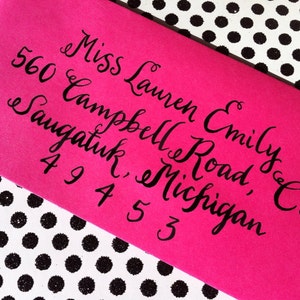 Miss Lauren Emily
560 Campbell Road, C
Saugatuk, Michigan
49453